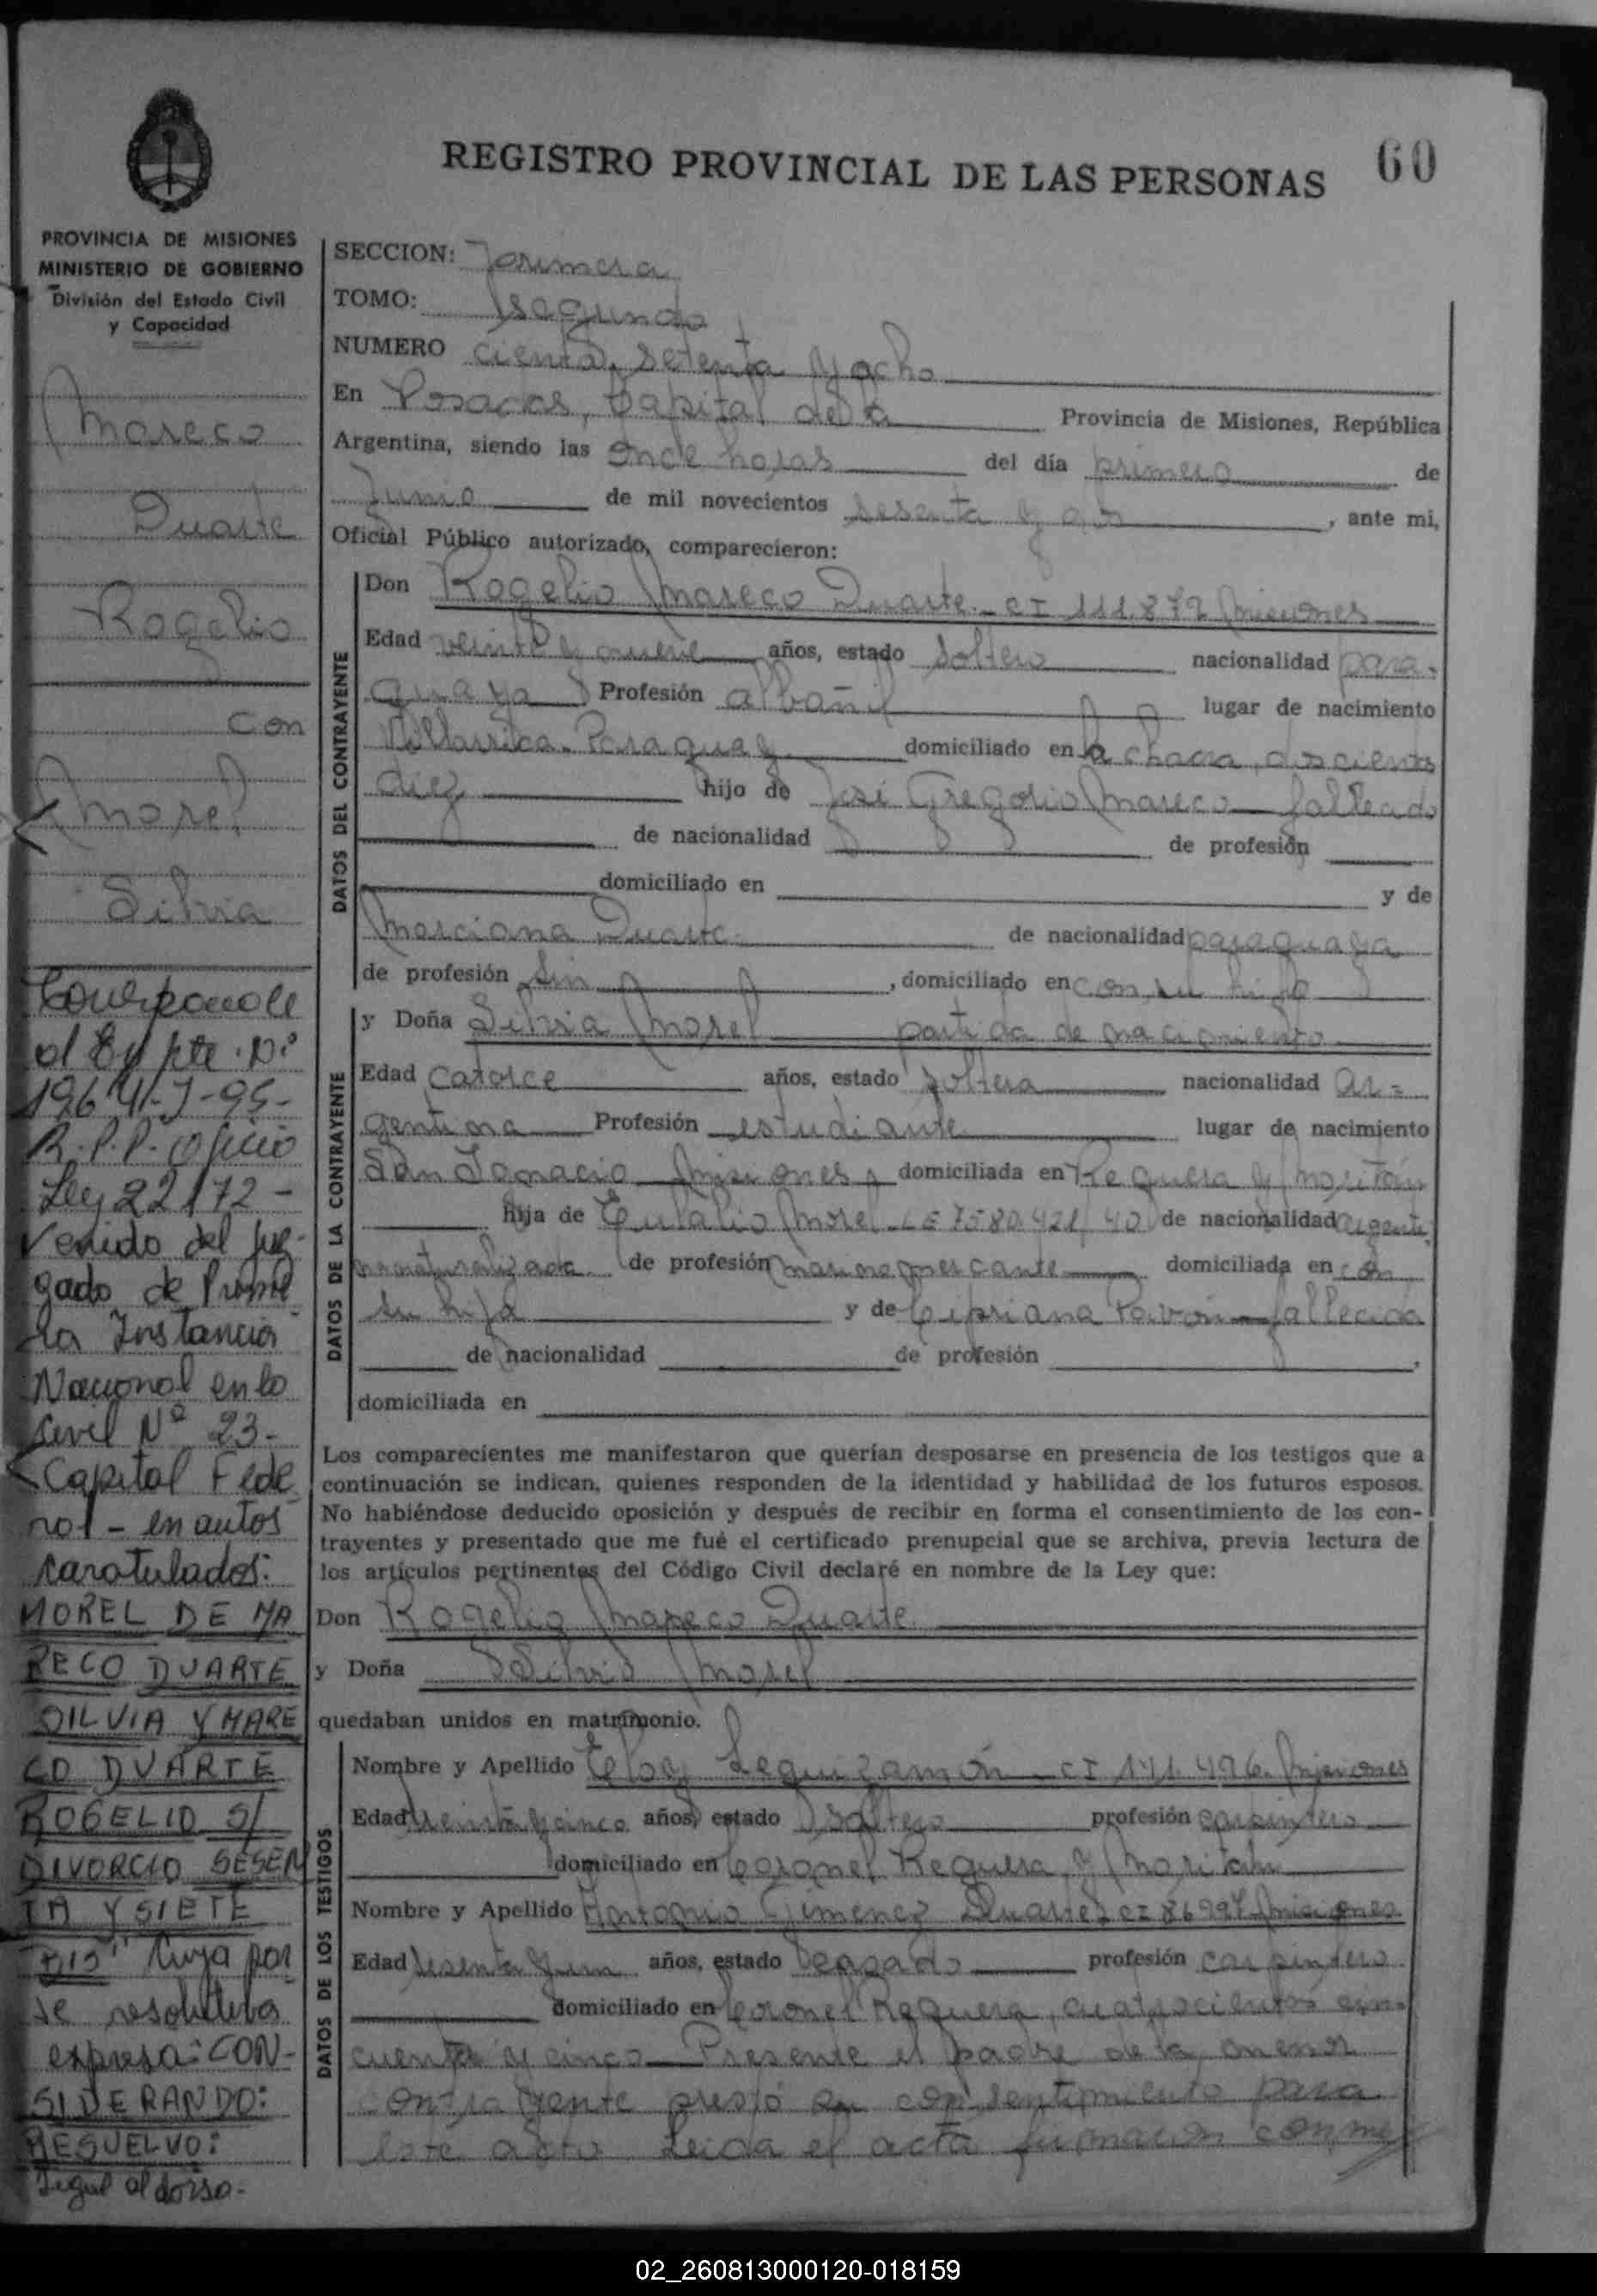 REGISTRO PROVINCIAL DE LAS PERSONAS
60
PROVINCIA DE MISIONES
MINISTERIO DE GOBIERNO
División del Estado Civil
y Capacidad
Mareco
Duarte
Rogelio
con
Morel
Silvia
Corresponde
al Expte. Nº
R.P.P. Oficio
Ley 22172-
venido del Juz-
gado de Prime-
ra Instancia
Nacional en lo
Civil Nº 23-
Capital Fede
ral - en autos
caratulados:
MOREL DE MA
RECO DUARTE
SILVIA Y MARE
CO DUARTE
ROGELIO S/
DIVORCIO SESEN
TA Y SIETE
BIS" Cuya par
te resolutiva
expresa: CON-
SIDERANDO:
RESUELVO:
Sigue al dorso-
SECCION: Primera
TOMO: Segundo
NUMERO ciento setenta y ocho
En Posadas, Capital de la Provincia de Misiones, República
Argentina, siendo las once horas del día primero de
Junio de mil novecientos sesenta y , ante mi,
Oficial Público autorizado, comparecieron:
DATOS DEL CONTRAYENTE
Don Rogelio Mareco Duarte - CI 111.872 Misiones
Edad veinte y nueve años, estado soltero nacionalidad para-
guaya Profesión albañil lugar de nacimiento
Villarrica - Paraguay domiciliado en la chacra doscientos
diez hijo de José Gregorio Mareco - fallecido
de nacionalidad de profesión
domiciliado en y de
Marciana Duarte de nacionalidad paraguaya
de profesión sin , domiciliado en con su hijo
DATOS DE LA CONTRAYENTE
y Doña Silvia Morel partida de nacimiento
Edad catorce años, estado soltera nacionalidad ar-
gentina Profesión estudiante lugar de nacimiento
San Ignacio Misiones domiciliada en Reguera y Moritán
hija de Eulalio Morel - LE 7580.421 de nacionalidad argenti
no naturalizado de profesión marino mercante domiciliada en con
su hija y de Cipriana Pavón - fallecida
de nacionalidad de profesión ,
domiciliada en
Los comparecientes me manifestaron que querían desposarse en presencia de los testigos que a
continuación se indican, quienes responden de la identidad y habilidad de los futuros esposos.
No habiéndose deducido oposición y después de recibir en forma el consentimiento de los con-
trayentes y presentado que me fué el certificado prenupcial que se archiva, previa lectura de
los artículos pertinentes del Código Civil declaré en nombre de la Ley que:
Don Rogelio Mareco Duarte
y Doña Silvia Morel
quedaban unidos en matrimonio.
DATOS DE LOS TESTIGOS
Nombre y Apellido Eloy Leguizamón - CI 141.496. Misiones
Edad treinta y cinco años, estado soltero profesión carpintero
domiciliado en Coronel Reguera y Moritán
Nombre y Apellido Antonio Gimenez Duarte CI Misiones
Edad sesenta y un años, estado casado profesión carpintero
domiciliado en Coronel Reguera, cuatrocientos cin-
cuenta y cinco - Presente el padre de la menor
contrayente prestó su consentimiento para
este acto. Leida el acta firmaron conmi
02_260813000120-018159